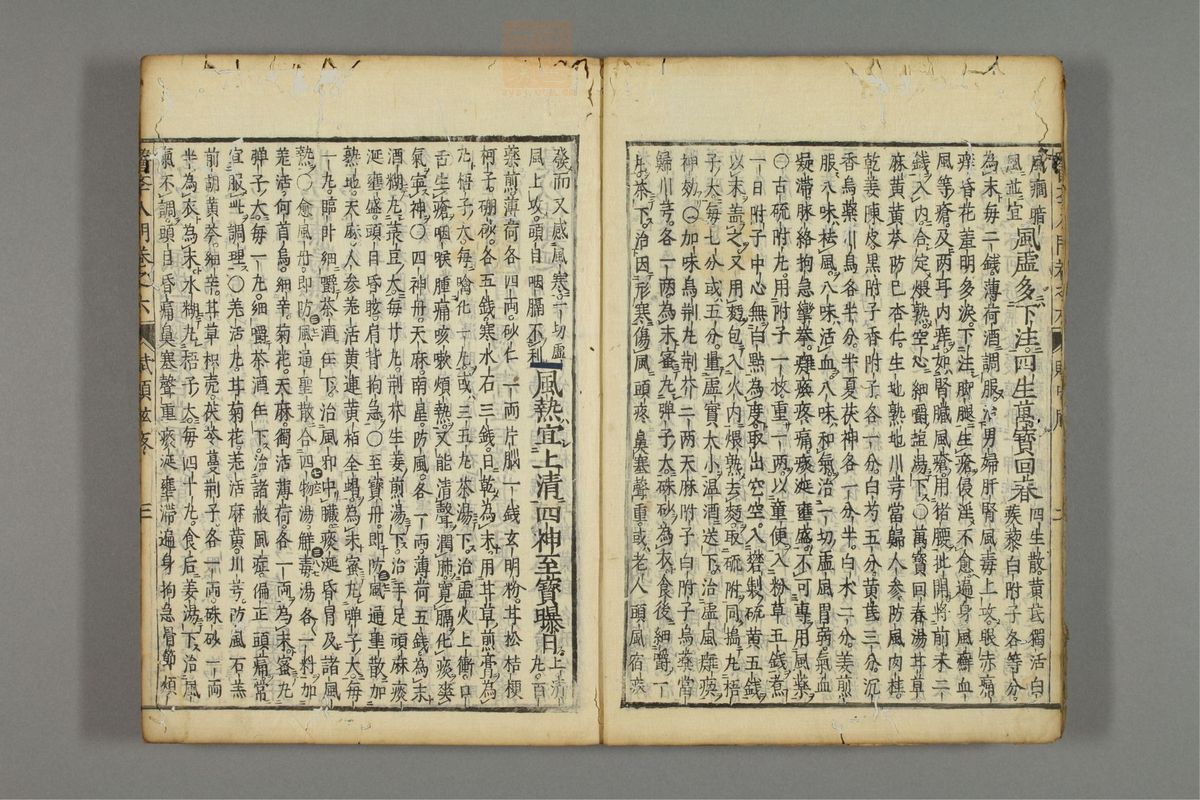 風癇暗風並宜風虛多下法四生萬寶回春四生散黃芪獨活白
蒺藜白附子各等分
為末每二錢薄荷酒調服治男婦肝腎風毒上攻眼赤痛
痒昏花羞明多淚下注脚腿生瘡侵淫不愈遍身風癬血
風等瘡及兩耳內痒如腎臟風瘡用猪腰批開將前末二
錢入內合定煨熟空心細嚼塩湯下〇萬寶回春湯甘草
麻黃黃芩防己杏仁生地熟地川芎當歸人參防風肉桂
乾姜陳皮黑附子香附子各一分白芍五分黃芪三分沉
香烏藥川烏各半分半夏茯神各一分半白朮二分姜煎
服八味袪風八味活血八味和氣治一切虛風胃弱氣血
凝滯脉絡拘急攣拳癱瘓疼痛痰涎壅盛不可專用風藥
〇古硫附丸用附子一枚重一兩以童便入粉草五錢煮
一日附子中心無白點為度取出空空入礬製硫黃五錢
以末盖之又用麪包入火內煨熟去麪取硫附同搗丸梧
子大每七分或五分量虛實大小溫酒送下治虛風癱瘓
神効〇加味烏荊丸荊芥二兩天麻附子白附子烏藥當
歸川芎各一兩為末蜜丸彈子大硃砂為衣食後細嚼一
丸茶下治因形寒傷風頭疼鼻塞聲重或老人頭風宿疾
發而又感風寒一切虛
風上攻頭目咽膈不利風熱宜上清四神至寶曝日上清丸百
藥煎薄荷各四兩砂仁一兩片腦一錢玄明粉甘松桔梗
柯子硼砂各五錢寒水石三錢日乾為末用甘草煎膏為
丸梧子大每噙化一丸或三五丸茶湯下治虛火上衝口
舌生瘡咽喉腫痛咳嗽煩熱又能清聲潤肺寬膈化痰爽
氣寧神〇四神丹天麻南星防風各一兩薄荷五錢為末
酒糊丸菉豆大每廿丸荊芥生姜煎湯下治手足頑麻痰
涎壅盛頭目昏眩肩背拘急〇至寶丹即防風通聖散加
熟地天麻人參羌活黃連黃栢全蝎為末蜜丸彈子大每
一丸臨臥細嚼茶酒任下治風和中臟痰涎昏冒及諸風
熱〇愈風丹即防風通聖散合四物湯觧毒湯各一料加
羌活何首烏細辛菊花天麻獨活薄荷各一兩為末蜜丸
彈子大每一丸細嚼茶酒任下治諸般風症偏正頭痛常
宜服此調理〇羌活丸甘菊花羌活麻黃川芎防風石羔
前胡黃芩細辛甘草枳壳茯苓蔓荆子各一兩硃砂一兩
半為衣為末水糊丸梧子大每四十丸食后姜湯下治風
氣不調頭目昏痛鼻塞聲重痰涎壅滯遍身拘急骨節煩